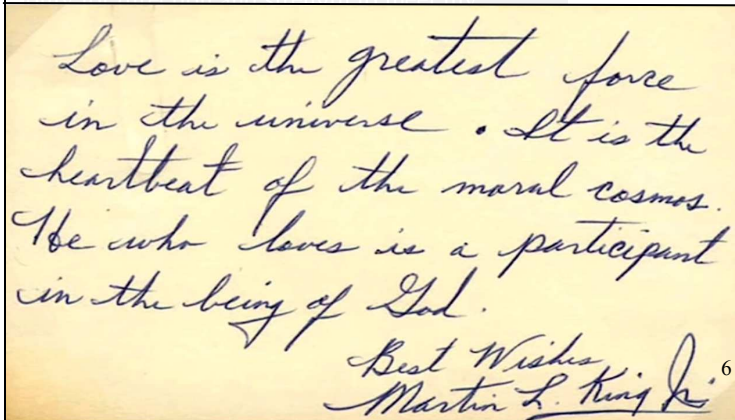 Love is the greatest force
in the universe. It is the
heartbeat of the moral cosmos.
He who loves is a participant
in the being of God.
Best Wishes
Martin L. King Jr.
6